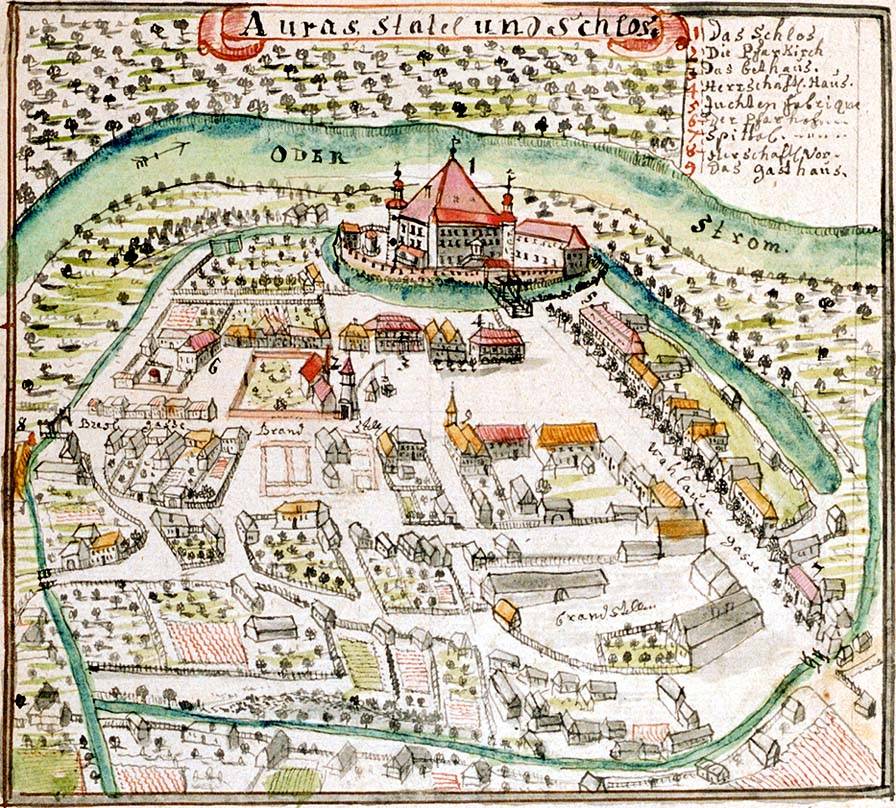 Auras Statel und Schlos.
1 Das Schlos
2 Die Pfarkirch
3 Das bethaus.
4 Herrschaftl. Haus.
5 Juchten fabrique
6 Der Pfarhof
7 Spittal.
8 Herschaftl. Vor-
9 Das gasthaus.
ODER
Strom.
1
2
3
4
5
6
7
8
9
Bresl gasse
Brand Stelle
Wohlauer gasse
brandstellen